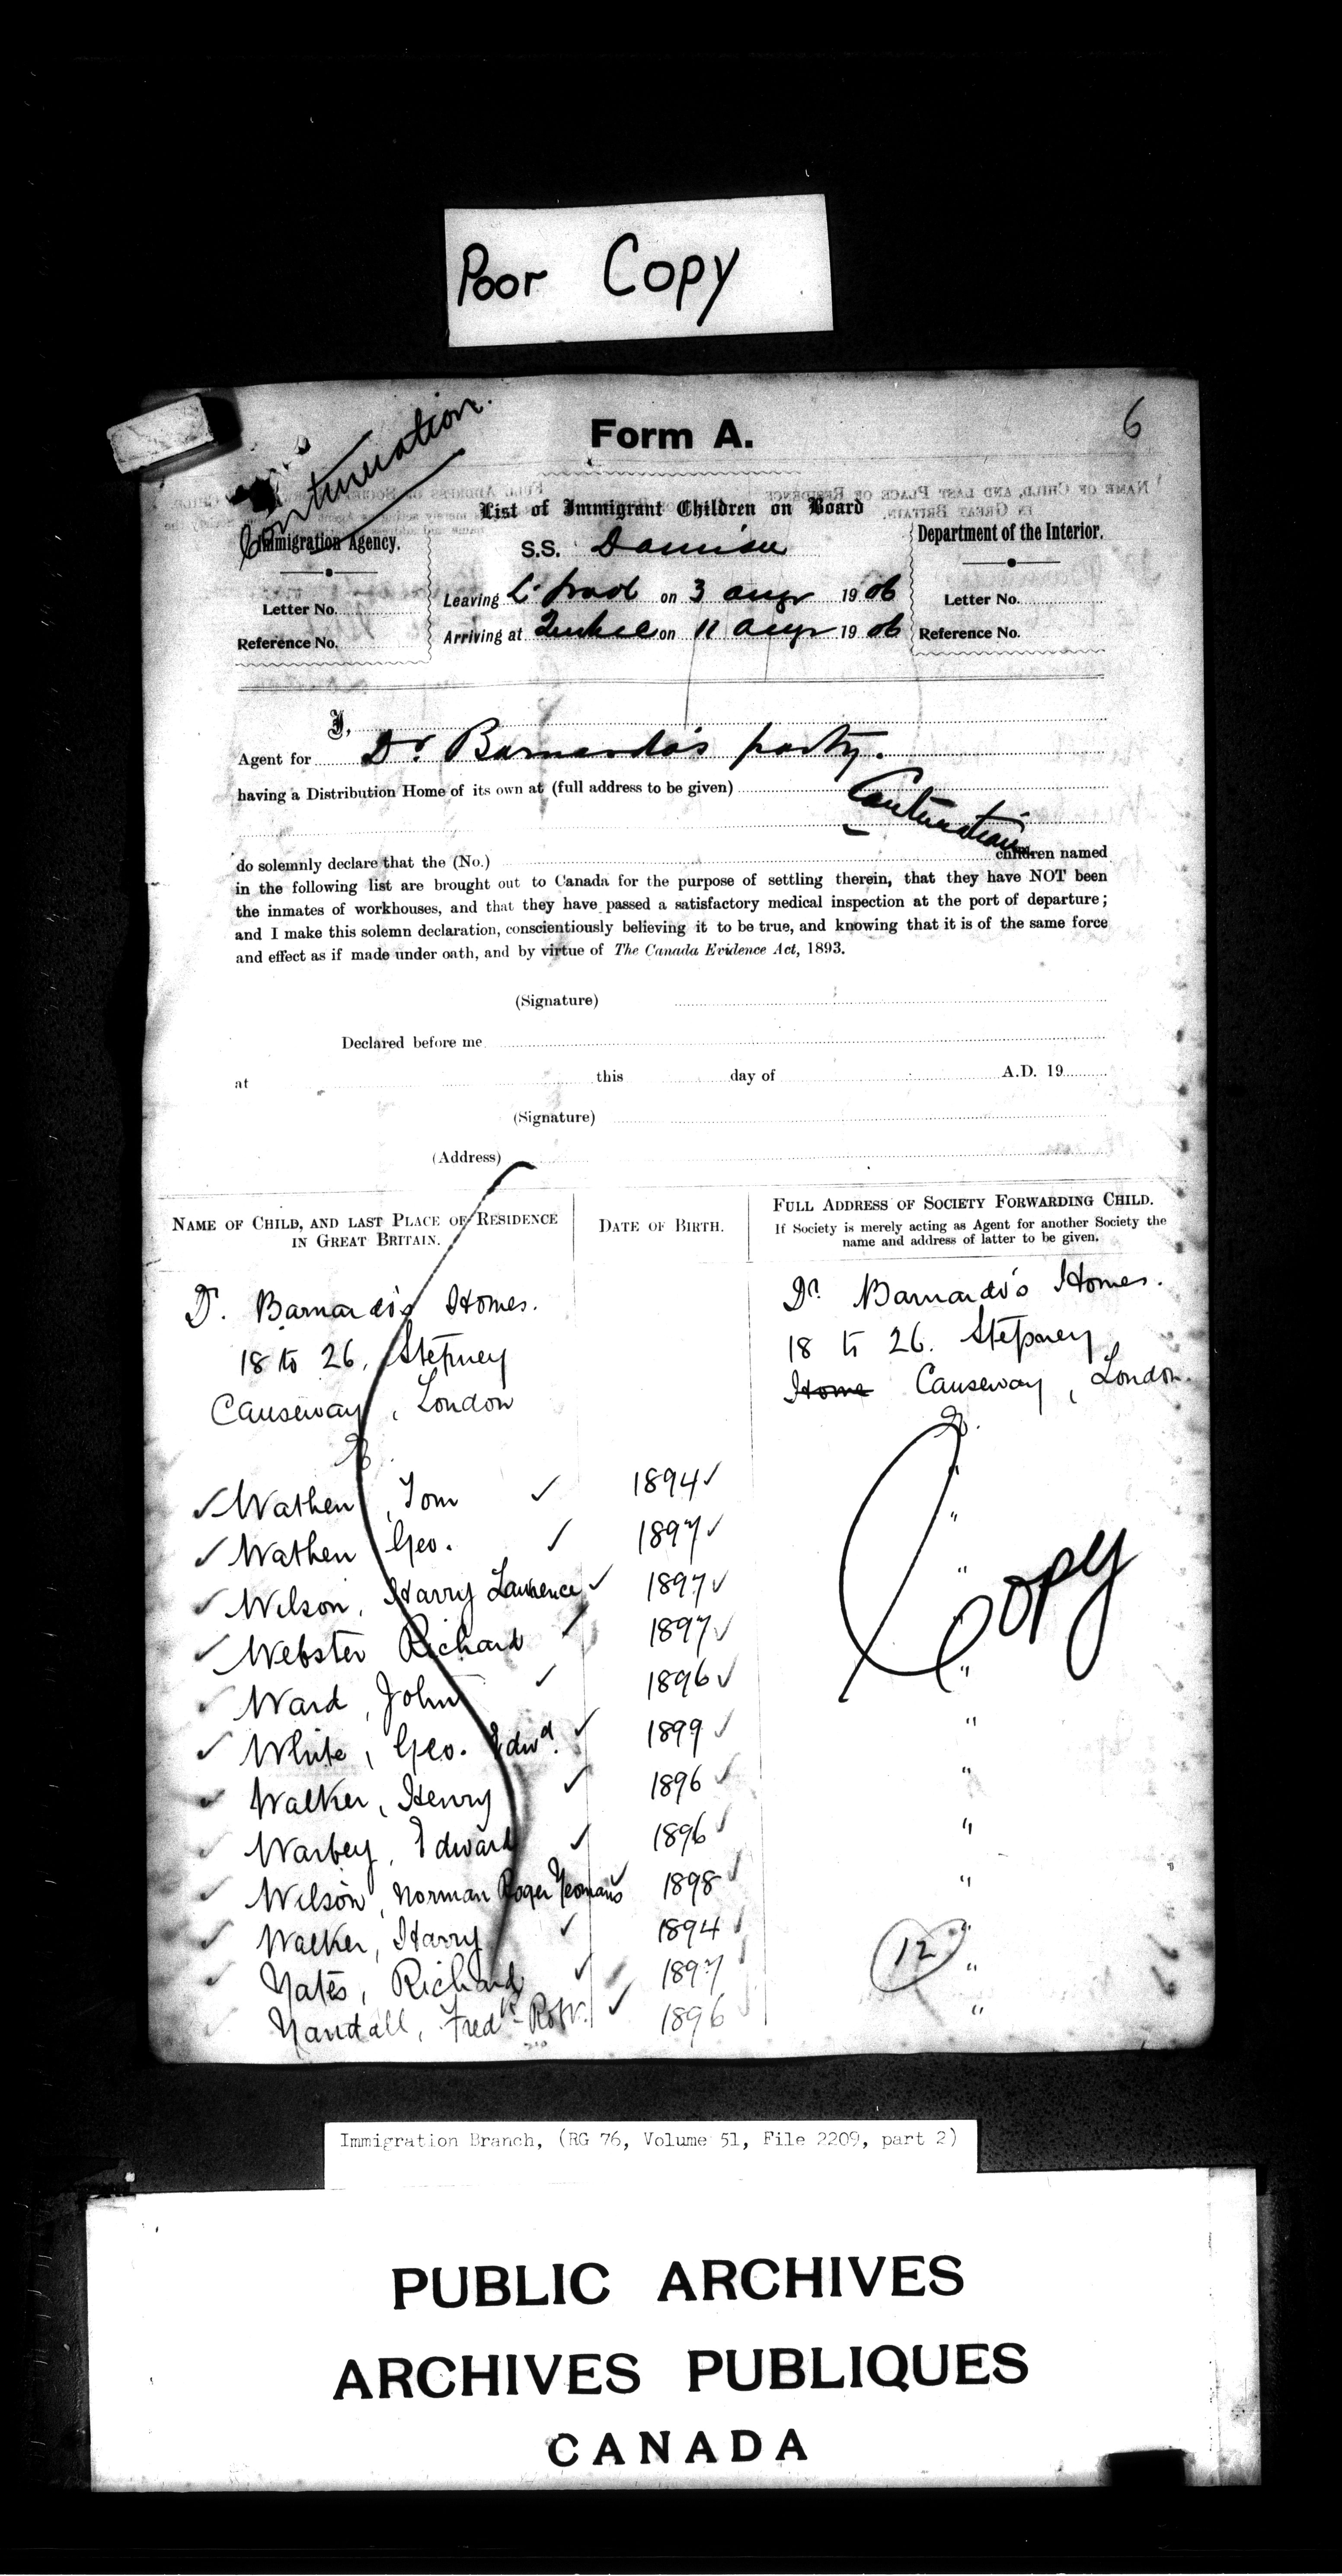 Poor Copy
6
Form A.
Continuation.
List of Immigrant Children on Board
Immigration Agency.
S.S.
Department of the Interior.
Letter No.
Leaving L'pool on 3 augr 1906
Letter No.
Reference No.
Arriving at Quebec on 11 augr 1906
Reference No.
I,
Agent for Dr Barnardo's party.
having a Distribution Home of its own at (full address to be given)
Continuation
do solemnly declare that the (No.) children named
in the following list are brought out to Canada for the purpose of settling therein, that they have NOT been
the inmates of workhouses, and that they have passed a satisfactory medical inspection at the port of departure;
and I make this solemn declaration, conscientiously believing it to be true, and knowing that it is of the same force
and effect as if made under oath, and by virtue of The Canada Evidence Act, 1893.
(Signature)
Declared before me
at this day of A.D. 19
(Signature)
(Address)
NAME OF CHILD, AND LAST PLACE OF RESIDENCE
IN GREAT BRITAIN.
DATE OF BIRTH.
FULL ADDRESS OF SOCIETY FORWARDING CHILD.
If Society is merely acting as Agent for another Society the
name and address of latter to be given.
Dr. Barnardo's Homes.
18 to 26, Stepney
Causeway, London
E.
Dr. Barnardo's Homes.
18 to 26. Stepney
Home Causeway, London.
E.
✓ Wathen, Tom ✓ 1894 ✓ "
✓ Wathen Geo. ✓ 1897 ✓ "
✓ Wilson, Harry Lawrence ✓ 1897 ✓ "
✓ Webster Richard ✓ 1897 ✓ "
Copy
✓ Ward, John ✓ 1896 ✓ "
✓ White, Geo. Edwd. ✓ 1899 ✓ "
✓ Walker, Henry ✓ 1896 ✓ "
✓ Warbey, Edward ✓ 1896 ✓ "
✓ Wilson, Norman Roger Yeomans ✓ 1898 ✓ "
✓ Walker, Harry ✓ 1894 ✓ "
12
✓ Yates, Richard ✓ 1897 ✓ "
✓ Yandall, Fredk Robt. ✓ 1896 ✓ "
Immigration Branch, (RG 76, Volume 51, File 2209, part 2)
PUBLIC ARCHIVES
ARCHIVES PUBLIQUES
CANADA